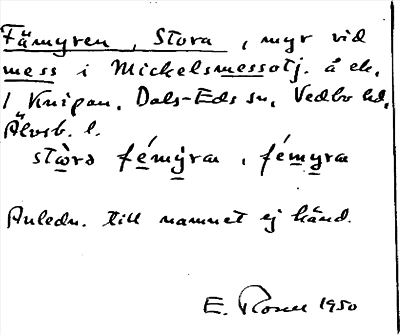 Fämyren, Stora, myr vid
mess i Mickelsmessotj. å ek.
1 Knipan, Dals-Eds sn, Vedbo hd,
Älvsb. l.
stɷ̀rə fémy̌ra, fémyra
Anledn. till namnet ej känd.
E. Rosell 1950